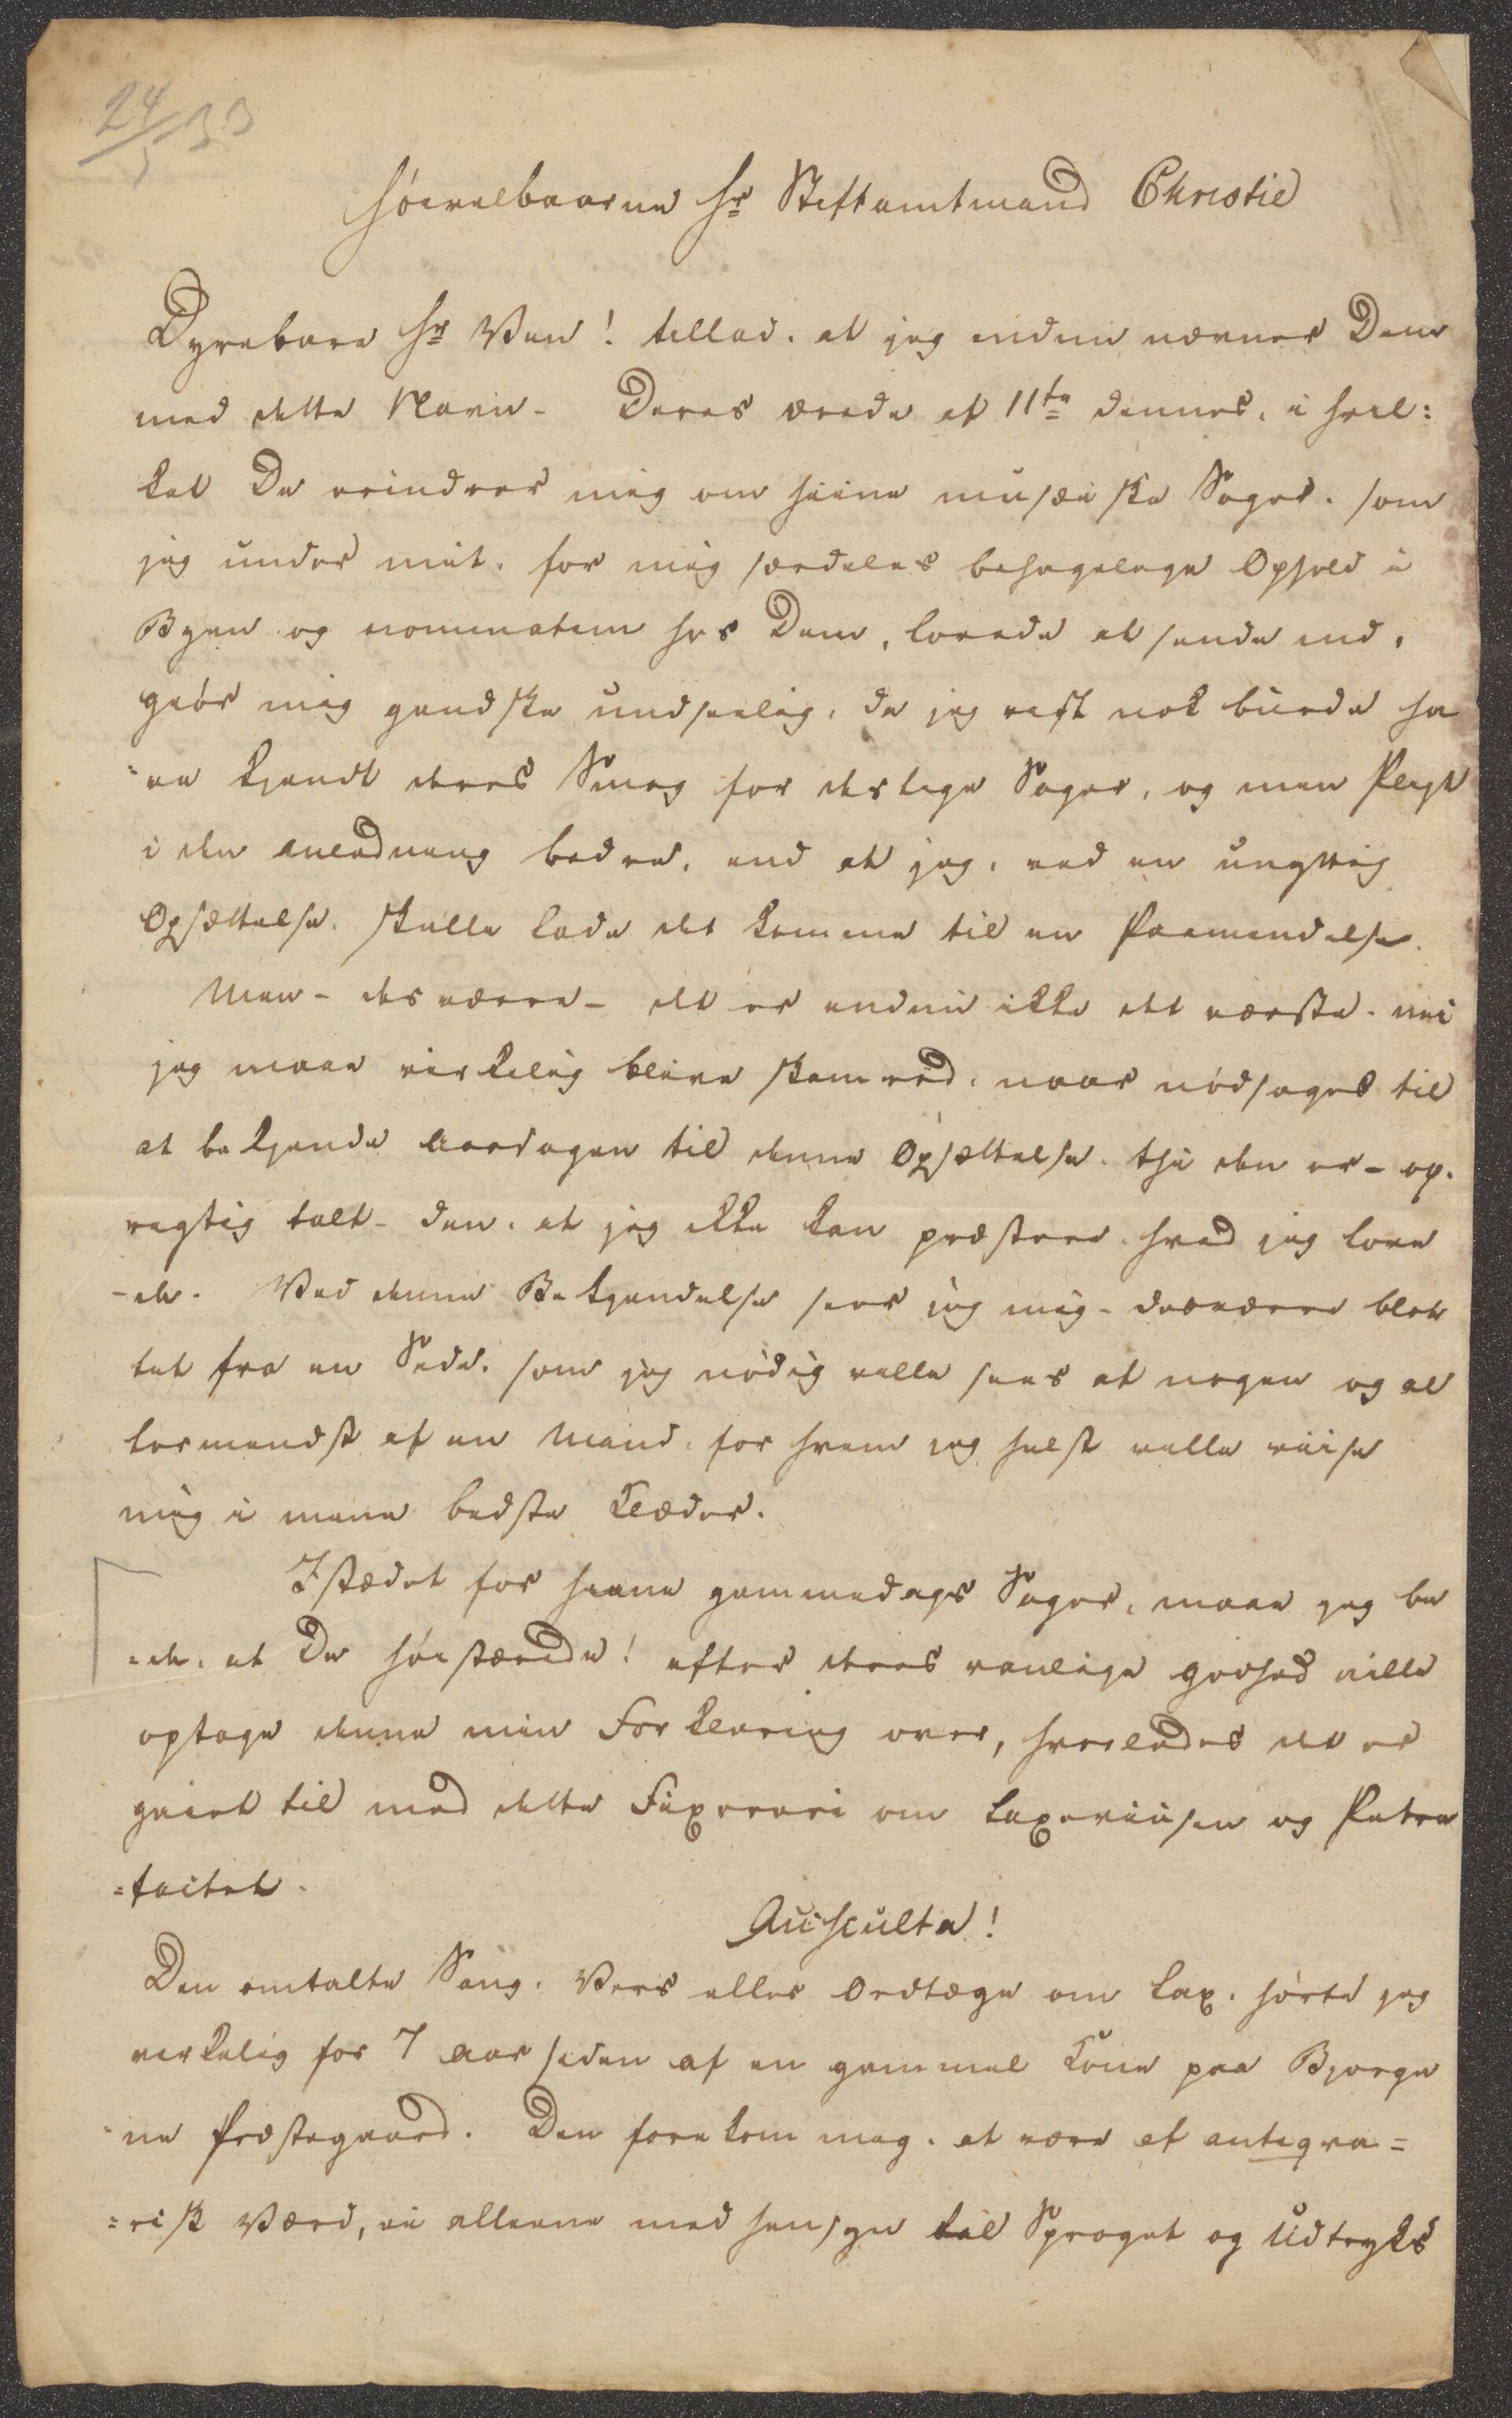 24/5 33
Høivelbaarne Hr Stiftamtmand Christie
Dyrebare Hr Ven! tillad, at jeg endnu nævner Dem
med dette Navn - Deres ærede af 11te dennes, i hvil:
ket De erindrer mig om hiine musæiske Sager, som
jeg under mit, for mig særdeles behagelige Ophold i
Byen og nominatim hos Dem, lovede at sende ind,
giør mig gandske undseelig, da jeg vist nok burde ha
:ve kjendt deres Smag for deslige Sager, og min Pligt
i den Anledning bedre, end at jeg, ved en unyttig
Opsættelse, skulle lade det komme til en Paamindelse.
Men - desværre - det er endnu ikke det værste - nei
jeg maae virkelig blive skamrød, naar nødsages til
at bekjende Aarsagen til denne Opsættelse, thi den er - op-
rigtig talt - den, at jeg ikke kan præstere hvad jeg love
-de. Ved denne Bekjendelse seer jeg mig - desværre blot
tet fra en Side, som jeg nødig ville sees af nogen og al
lermindst af en Mand, for hvem jeg helst ville viise
mig i mine bedste Klæder.
Istædet for hiine gammedags Sager, maae jeg be
:de, at De Høistærede! efter deres vanlige Godhed ville
optage denne min Forklaring over, hvorledes det er
gaaet til med dette Fixereri om Laxeviisen og Petre
:factet.
Ausculta!
Den omtalte Sang, Vers eller Ordtøge om Lax, hørte jeg
virkelig for 7 Aar siden af en gammel Kone paa Bjerge
:ne Præstegaard. Den forekom mig, at være af antiqva=
:risk Værd, ei alleene med Hensyn til Sproget og Udtryks